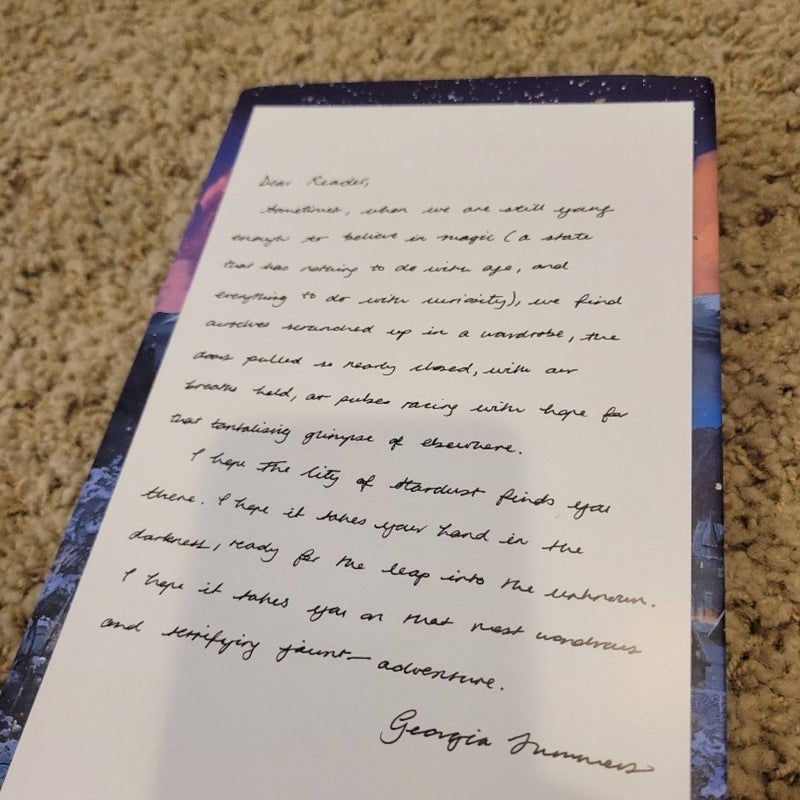 Dear Reader,
Sometimes, when we are still young
enough to believe in magic (a state
that has nothing to do with age, and
everything to do with curiosity), we find
ourselves scrunched up in a wardrobe, the
doors pulled so nearly closed, with our
breaths held, our pulses racing with hope for
that tantalising glimpse of elsewhere.
I hope The City of Stardust finds you
there. I hope it takes your hand in the
darkness, ready for the leap into the unknown.
I hope it takes you on that most wondrous
and terrifying jaunt— adventure.
Georgia Summers